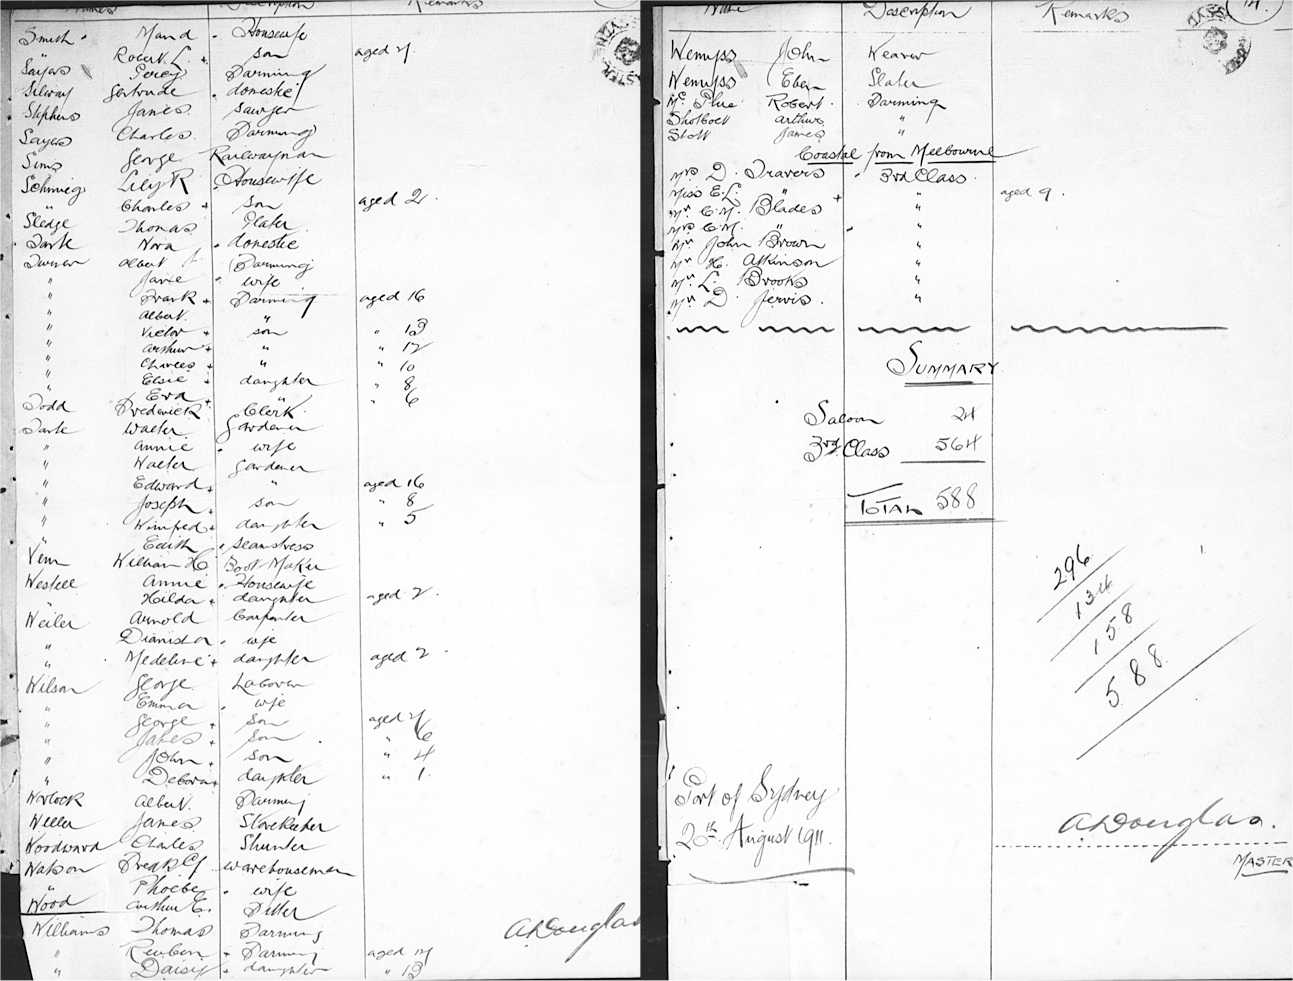 Names Description Remarks
Smith Maud Housewife
" Robert L. son aged 4
Sayers Percy Farming
Silway Gertrude domestic
Stephens James Sawyer
Sayers Charles Farming
Sims George Railwayman
Schmieg Lily R Housewife
" Charles son aged 2
Sledge Thomas Slater
Tark Nora domestic
Turner Albert Farming
" Janie wife
" Frank Farming aged 16
" Albert "
" Victor son " 13
" Arthur " " 12
" Charles " " 10
" Elsie daughter " 8
" Eva " " 6
Todd Frederick Clerk
Tark Walter Gardener
" Annie wife
" Walter Gardener
" Edward " aged 16
" Joseph son " 8
" Winifred daughter " 5
" Edith Seamstress
Venn William H. Boot Maker
Westell Annie Housewife
" Hilda daughter aged 2
Weiler Arnold Carpenter
" wife
" Medeline daughter aged 2
Wilson George Labourer
" Emma wife
" George son aged 7
" James son " 6
" John son " 4
" Debora daughter " 1
Worlock Albert Farming
Weller James Storekeeper
Woodward Charles Shunter
Watson Fredk G warehouseman
" Phoebe wife
Wood Arthur E. Fitter
Williams Thomas Farming
" Reuben Farming aged 14
" Daisy daughter " 13
A. Douglas
Name Description Remarks
14.
Wemyss John Weaver
Wemyss Eben Slater
Mc Phie Robert Farming
Shotbolt Arthur "
Stott James "
Coastal from Melbourne
Mrs D. Travers 3rd Class
Miss E. L. " " aged 9.
Mr C. M. Blades "
Mrs C. M. " "
Mr John Brown "
Mr H. Atkinson "
Mr L. Brooks "
Mr D. Jervis "
Summary
Saloon 24
3rd Class 564
Total 588
296
134
158
588
Port of Sydney
20th August 1911.
A. Douglas.
Master